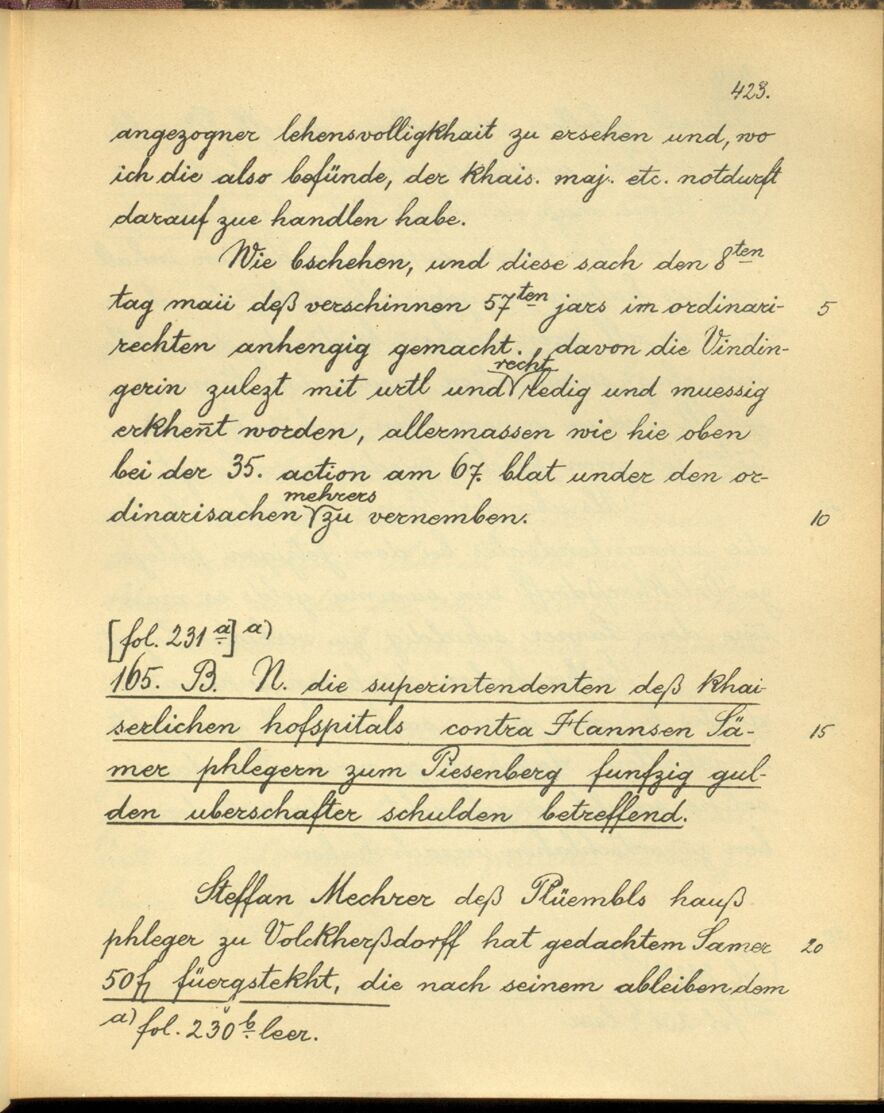 423.
angezogner lehensvolligkhait zu ersehen und, wo
ich die also befünde, der khais. maj. etc. notdurft
darauf zue handlen habe.
Wie bschehen, und diese sach den 8ten
tag maii deß verschinnen 57ten jars im ordinari-
5
rechten anhengig gemacht. davon die Vindin-
recht
gerin zulezt mit urtl und ledig und muessig
erkhen̄t worden, allermassen wie hie oben
bei der 35. action am 67. blat under den or-
mehrers
dinarisachen zu vernemben.
10
[fol. 231a.] a)
165. B. N. die superintendenten deß khai-
serlichen hofspitals contra Hannsen Sä-
15
mer phlegern zum Piesenberg funfzig gul-
den uberschafter schulden betreffend.
Steffan Mechrer deß Plüembls hauß
phleger zu Volckherßdorff hat gedachtem Samer
20
50 fl füergstekht, die nach seinem ableiben dem
a) fol. 230b. leer.